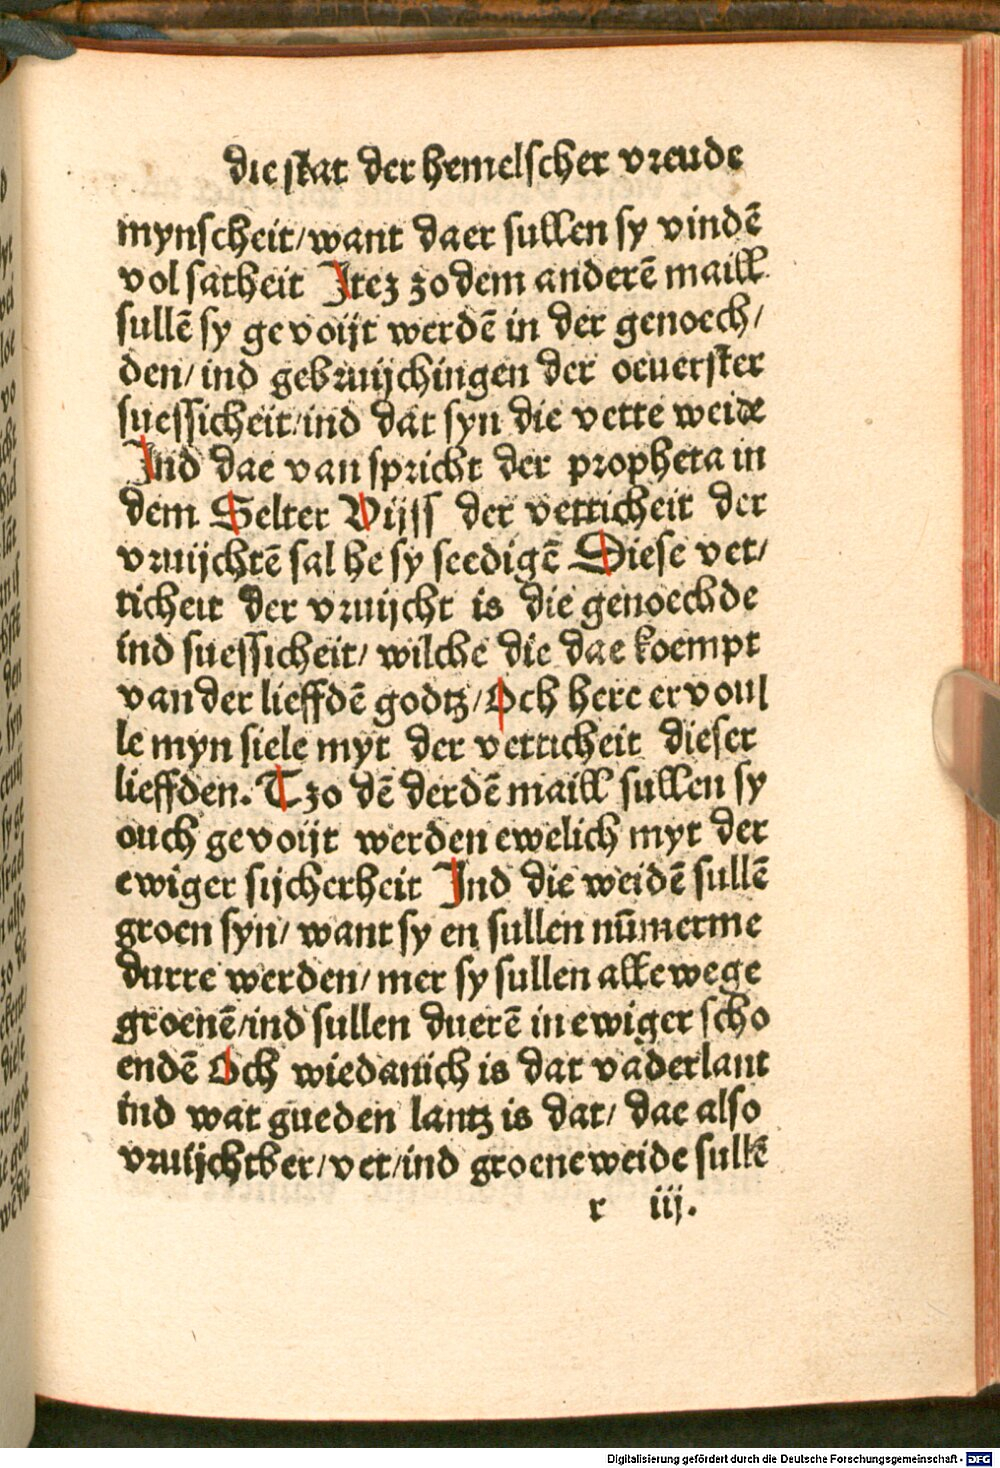 die stat der hemelscher vreude
mynscheit/want daer sullen sy vindē
vol satheit Itez zo dem anderē maill
sullē sy gevoijt werdē in der genoech/
den/ind gebruijchingen der oeuerster
suessicheit/ind dat syn die vette weide
Ind dae van spricht der propheta in
dem Selter Vijss der vetticheit der
vruijchtē sal he sy seedigē Diese vet/
ticheit der vruijcht is die genoechde
ind suessicheit/wilche die dae koempt
van der lieffdē godtz/Och here ervoul
le myn siele myt der vetticheit dieser
lieffden. Tzo dē derdē maill sullen sy
ouch gevoijt werden ewelich myt der
ewiger sijcherheit Ind die weidē sullē
groen syn/want sy en sullen nūmerme
durre werden/mer sy sullen alle wege
groenē/ind sullen duerē in ewiger scho
endē Och wiedanich is dat vaderlant
ind wat gueden lantz is dat/dae also
vruijchtber/vet/ind groene weide sullē
r iij.
Digitalisierung gefördert durch die Deutsche Forschungsgemeinschaft - DFG